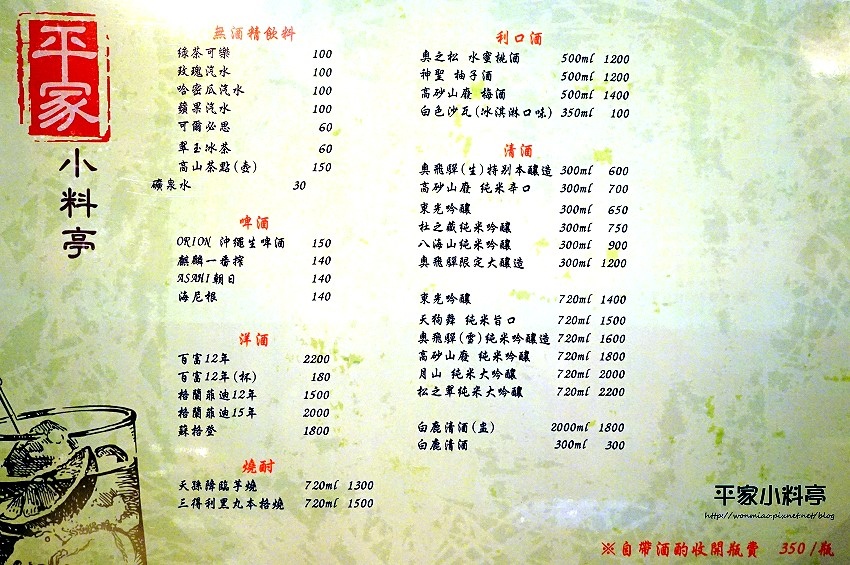 平家
小料亭
無酒精飲料
綠茶可樂 100
玫瑰汽水 100
哈密瓜汽水 100
蘋果汽水 100
可爾必思 60
翠玉冰茶 60
高山茶點(壺) 150
礦泉水 30
啤酒
ORION 沖繩生啤酒 150
麒麟一番搾 140
ASAHI朝日 140
海尼根 140
洋酒
百富12年 2200
百富12年(杯) 180
格蘭菲迪12年 1500
格蘭菲迪15年 2000
蘇格登 1800
燒酎
天孫降臨芋燒 720ml 1300
三得利黑丸本格燒 720ml 1500
利口酒
奧之松 水蜜桃酒 500ml 1200
神聖 柚子酒 500ml 1200
高砂山廢 梅酒 500ml 1400
白色沙瓦(冰淇淋口味) 350ml 100
清酒
奧飛驒(生)特別本釀造 300ml 600
高砂山廢 純米辛口 300ml 700
東光吟釀 300ml 650
杜之藏純米吟釀 300ml 750
八海山純米吟釀 300ml 900
奧飛驒限定大釀造 300ml 1200
東光吟釀 720ml 1400
天狗舞 純米旨口 720ml 1500
奧飛驒(雪)純米吟釀造 720ml 1600
高砂山廢 純米吟釀 720ml 1800
月山 純米大吟釀 720ml 2000
松之翠純米大吟釀 720ml 2200
白鹿清酒(盅) 2000ml 1800
白鹿清酒 300ml 300
平家小料亭
http://wonmiao.pixnet.net/blog
※自帶酒酌收開瓶費 350/瓶